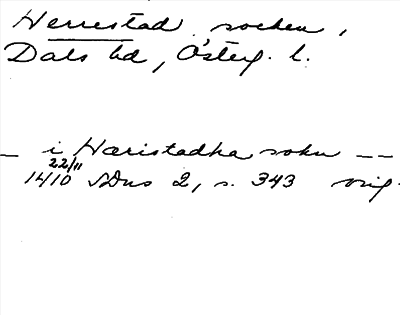 Herrestad socken,
Dals hd, Österg. l.
-- i Hæristadha sokn --
22/11
1410 SDns 2, s. 343 orig.